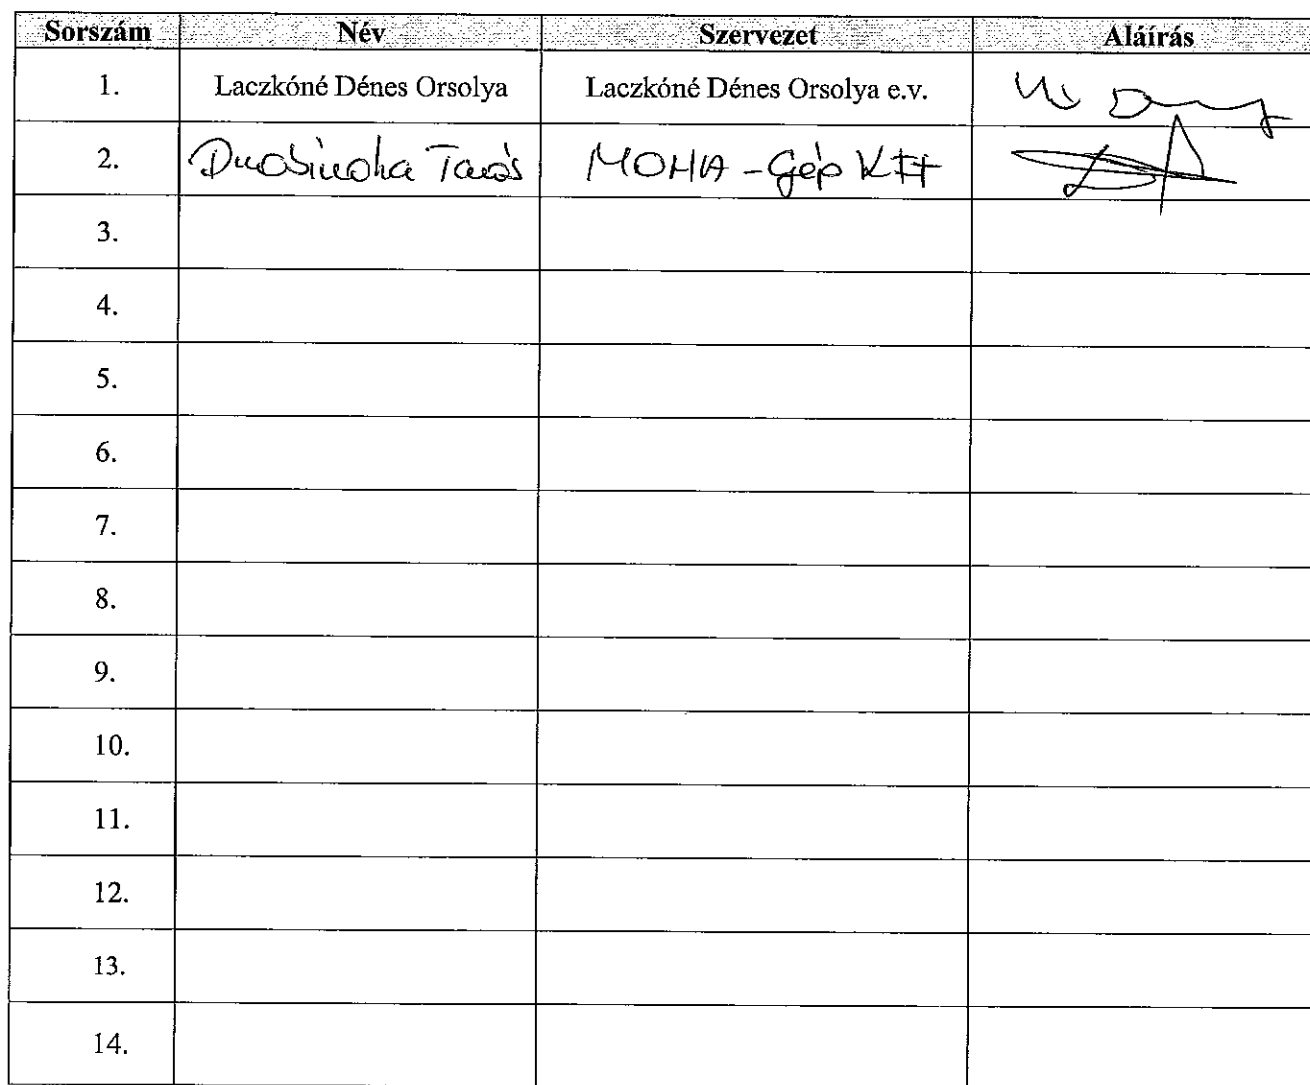 Sorszám Név Szervezet Aláírás
1. Laczkóné Dénes Orsolya Laczkóné Dénes Orsolya e.v.
2. MOHA-Gép Kft
3.
4.
5.
6.
7.
8.
9.
10.
11.
12.
13.
14.